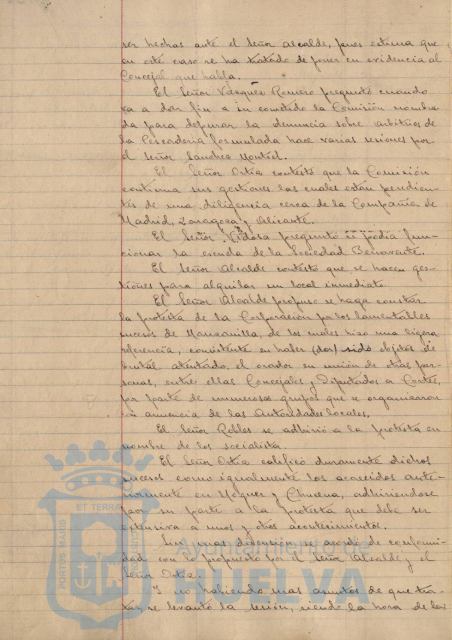 ser hechas ante el Señor alcalde, pues estima que
en este caso se ha tratado de poner en evidencia al
Concejal que habla.
El Señor Vazquez Romero preguntó cuando
va a dar fin a su cometido la Comisión nombra
da para depurar la denuncia sobre arbitrios de
la Pescadería formulada hace varias sesiones por
el Señor Sanchez Montiel.
El Señor Ortiz contestó que la Comisión
continua sus gestiones las cuales están pendien-
tes de una diligencia cerca de la Compañía de
Madrid, Zaragoza y Alicante.
El Señor preguntó si podia fun-
cionar la escuela de la Sociedad Benavente.
El Señor Alcalde contestó que se hacen ges-
tiones para alquilar un local inmediato.
El Señor Alcalde propuso se haga constar
la protesta de la Corporación por los lamentables
sucesos de Manzanilla, de los cuales hizo una ligera
referencia, consistente en haber sido objetos de
brutal atentado, el orador en unión de otras per-
sonas, entre ellas Concejales y Diputados a Cortes,
por parte de numerosos grupos que se organizaron
con anuencia de las Autoridades locales.
El Señor Robles se adhirió a la protesta en
nombre de los socialista.
El Señor Ortiz calificó duramente dichos
sucesos como igualmente los acaecidos ante-
riormente en Moguer y Chucena, adhiriendose
por su parte a la protesta que debe ser
extensiva a unos y otros acontecimientos.
Sin mas discusión se acordó de conformi-
dad con lo propuesto por el Señor Alcalde y el
Señor Ortiz.
Y no habiendo mas asuntos de que tra-
tar, se levantó la sesión, siendo la hora de las
PORTUS MARIS ET TERRAE CUSTODIA
Ayuntamiento de
HUELVA